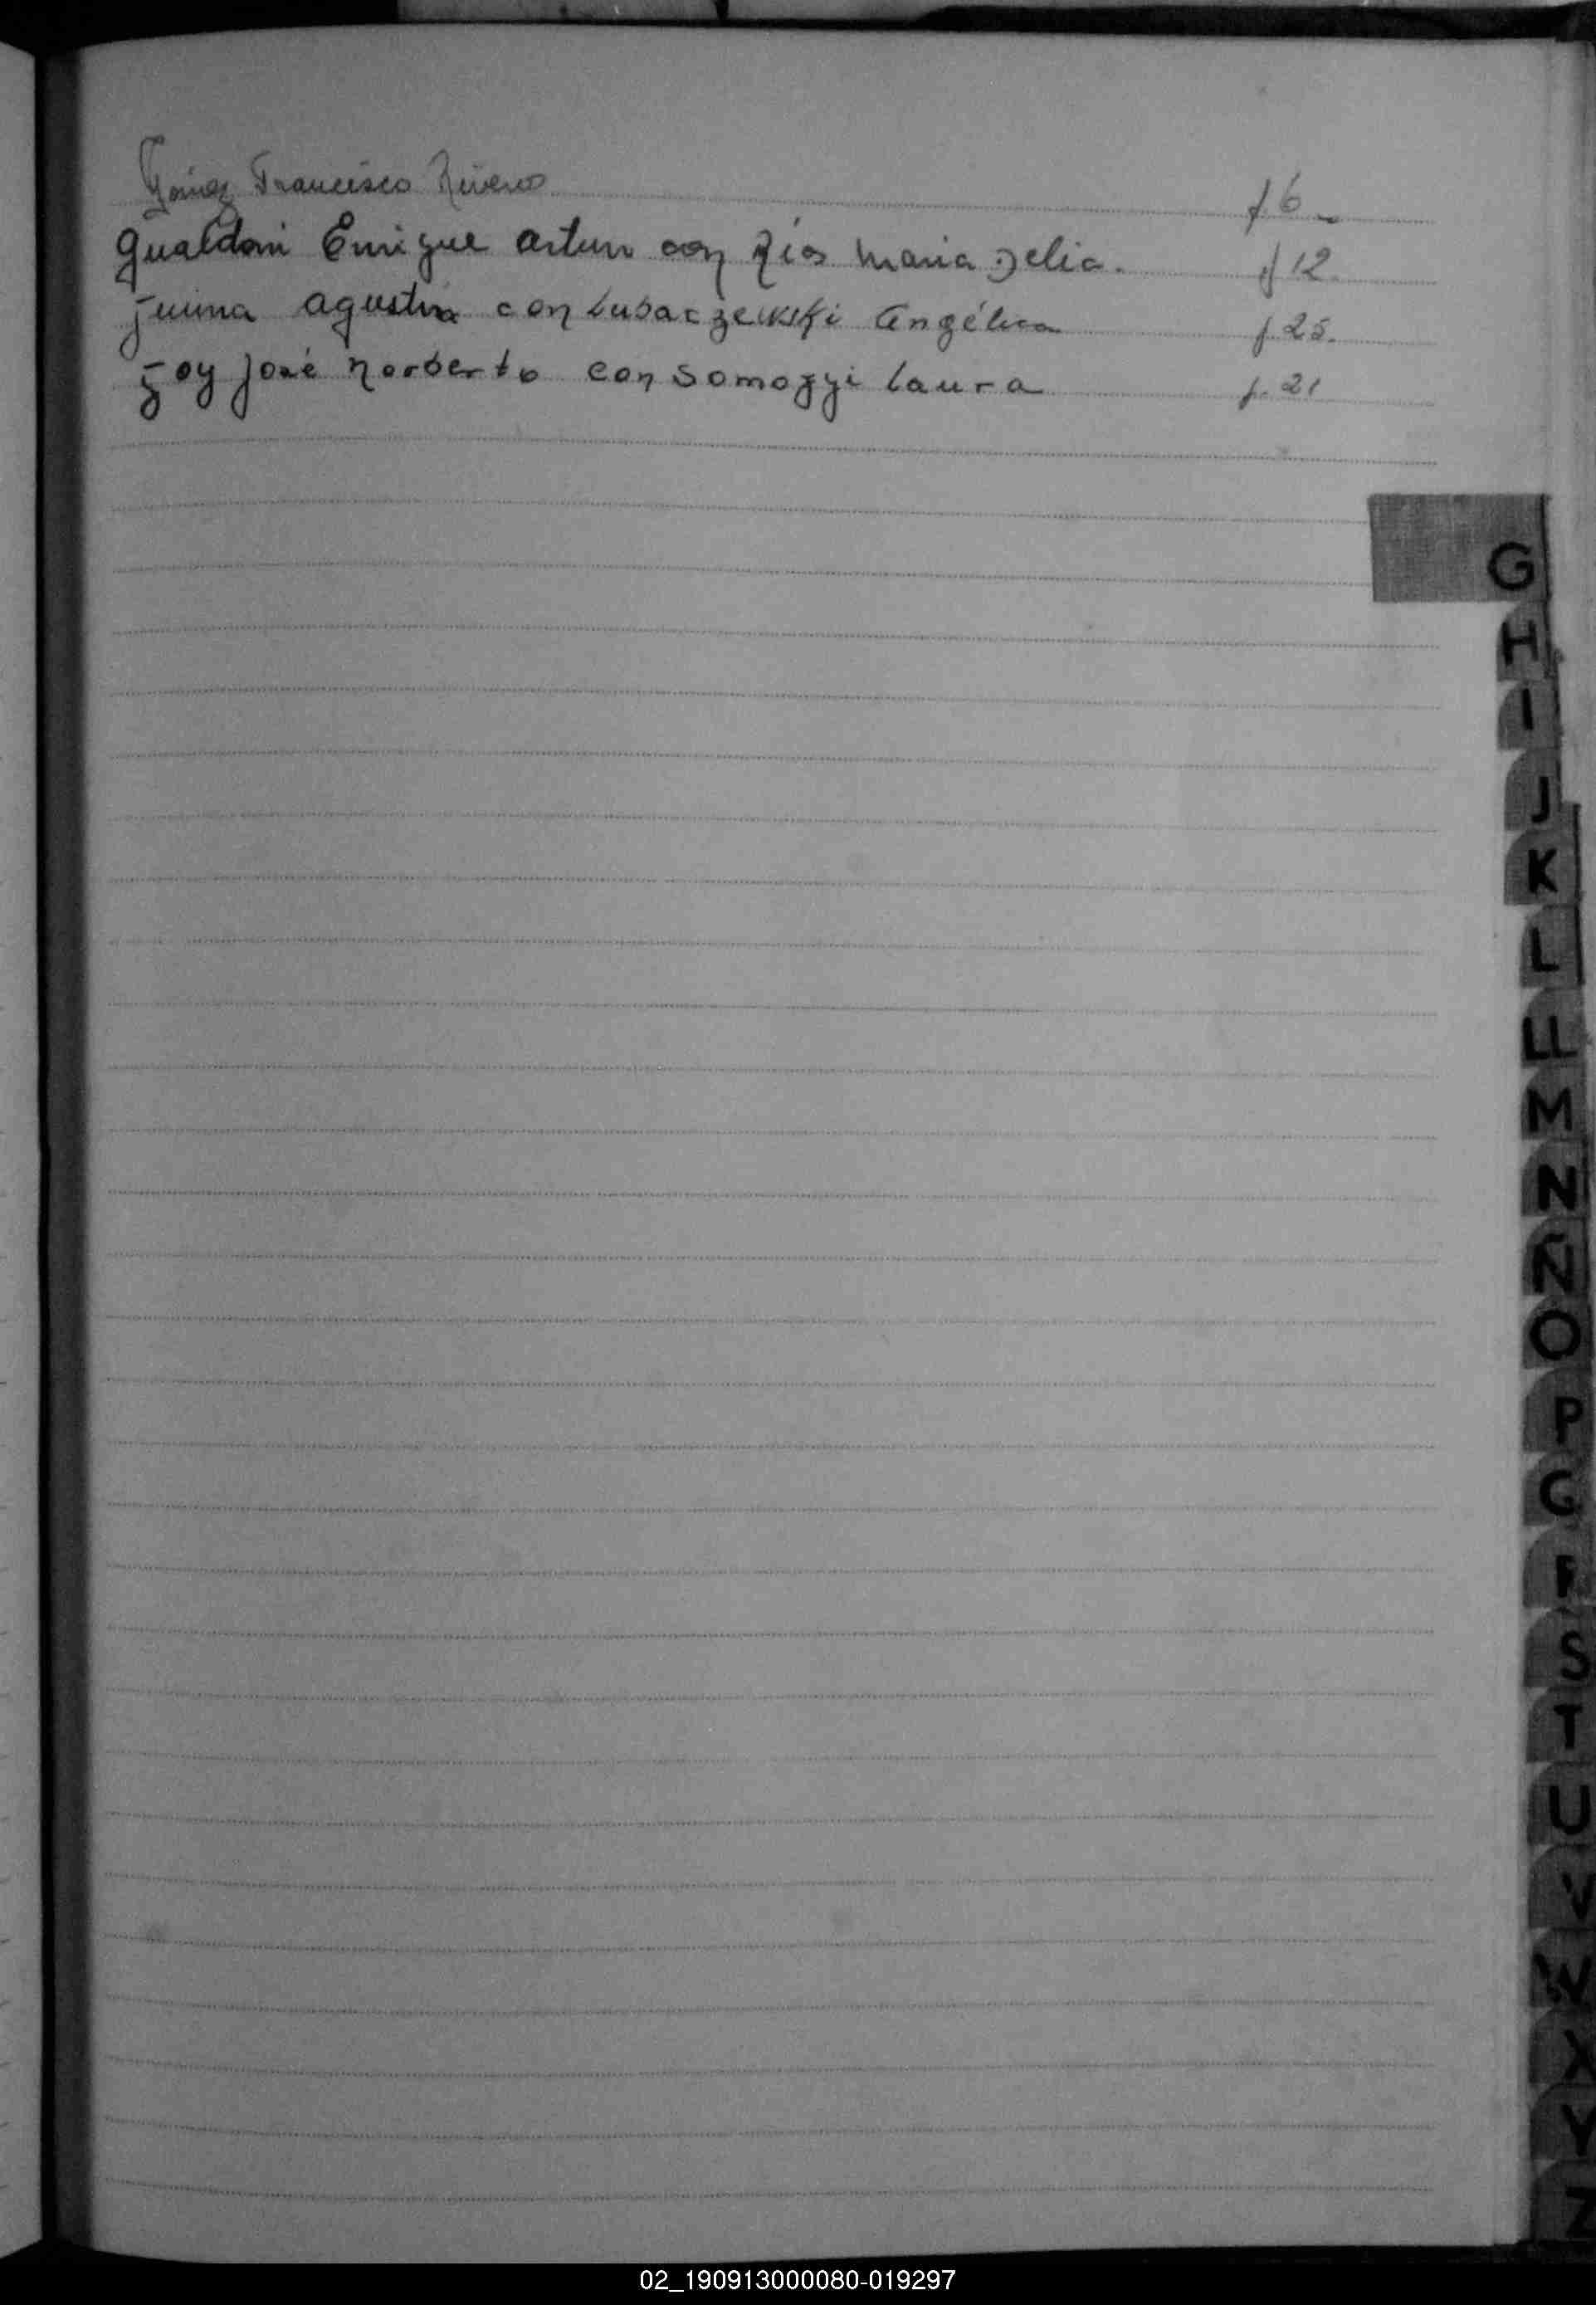 Gómez Francisco Rivero f. 6
Gualdoni Enrique Arturo con Ríos Maria Delia. f 12
Agustin con Lubaczewski Angélica f. 25.
Goy José Norberto con Somogyi Laura f. 21
G
H
I
J
K
L
LL
M
N
Ñ
O
P
S
T
U
V
W
X
Y
Z
02_190913000080-019297